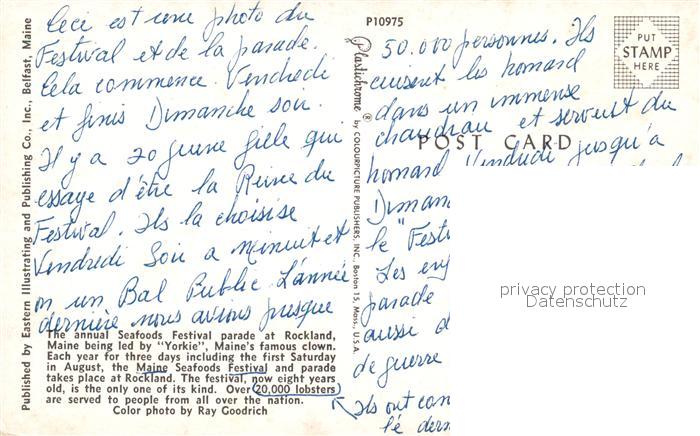 Ceci est une photo du
Festival et de la parade.
Cela commence Vendredi
et finis Dimanche soir.
Il y a 20 jeune fiele qui
essaye d'être la Reine du
Festival. Ils la choisise
Vendredi Soir a Minuit et
on un Bal Public L'année
dernière nous avions presque
The annual Seafoods Festival parade at Rockland,
Maine being led by "Yorkie", Maine's famous clown.
Each year for three days including the first Saturday
in August, the Maine Seafoods Festival and parade
takes place at Rockland. The festival, now eight years
old, is the only one of its kind. Over 20,000 lobsters
are served to people from all over the nation.
Color photo by Ray Goodrich
Published by Eastern Illustrating and Publishing Co., Inc., Belfast, Maine
Plastichrome ® by COLOURPICTURE PUBLISHERS, INC., Boston 15, Mass., U.S.A.
P10975
PUT
STAMP
HERE
POST CARD
50.000 personnes. Ils
cuisent les homard
dans un immense
chaudrau et servent du
homard Vendredi jusqu'a
Diman
le "Festi
Les
parade
aussi d
de guerre
Ils ont
le dern
privacy protection
Datenschutz